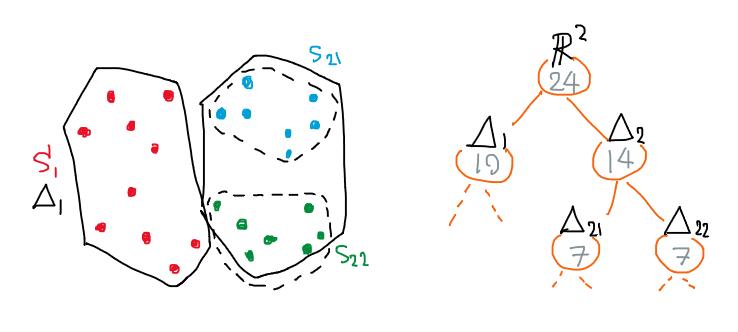 S₂₁
S₁
Δ₁
S₂₂
ℝ²
24
Δ₁ Δ₂
10 14
Δ₂₁ Δ₂₂
7 7